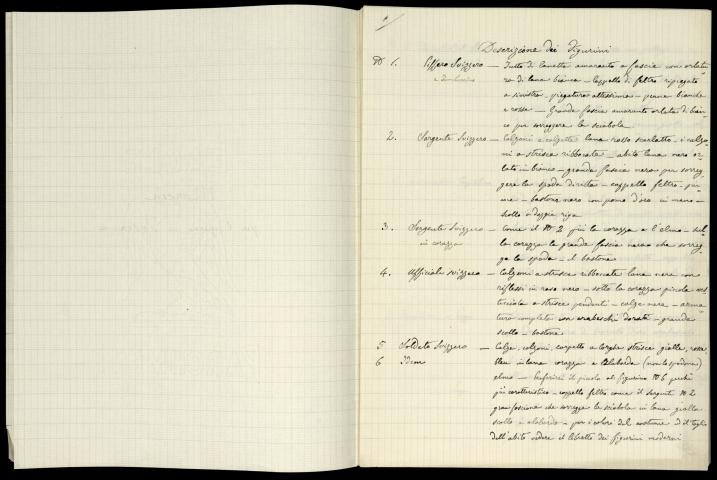 Descrizione dei Figurini
N 1. Piffero Svizzero — Tutto di lanetta amaranto a fascia con orlatu-
ra di lana bianca — Cappello di feltro ripiegato
a sinistra, piegatura altissima — penna bianche
e rosse — Grande fascia amaranto orlata di bian-
co per sorreggere la sciabola
2. Sargente Svizzero — Calzoni e calzette lana rosso scarlatto, i calzo-
ni a striscia ribboccata — abito lana nera or-
lato in bianco — grande fascia nera per sorreg-
gere la spada diritta — cappello feltro — piu-
me — bastone nero con pomo d'oro in mano —
scollo a doppia riga
3. Sergente Svizzero — Come il N 2 più la corazza e l'elmo — sul-
in corazza la corazza la grande fascia nera che sorreg-
ga la spada — il bastone
4. Ufficiale svizzero — Calzoni a striscie ribboccate lana nera con
riflessi in raso nero — sotto la corazza piccola ves-
ticciola a striscie pendenti — calze nere — arma-
tura completa con arabeschi dorati — grande
scollo — bastone
5 Soldato Svizzero — Calze, calzoni, corpetto a larghe striscie gialle, rosse
6 Idem bleu in lana corazza e alabarda (non lo spadone)
elmo — Preferirei il piccolo al figurino N 6 perchè
più caratteristico — cappello feltro come il sargente N 2
gran fascione che sorregge la sciabola in lana gialla
scollo e alabarda — per i colori del costume e il taglio
dell'abito vedere il libretto dei figurini moderni